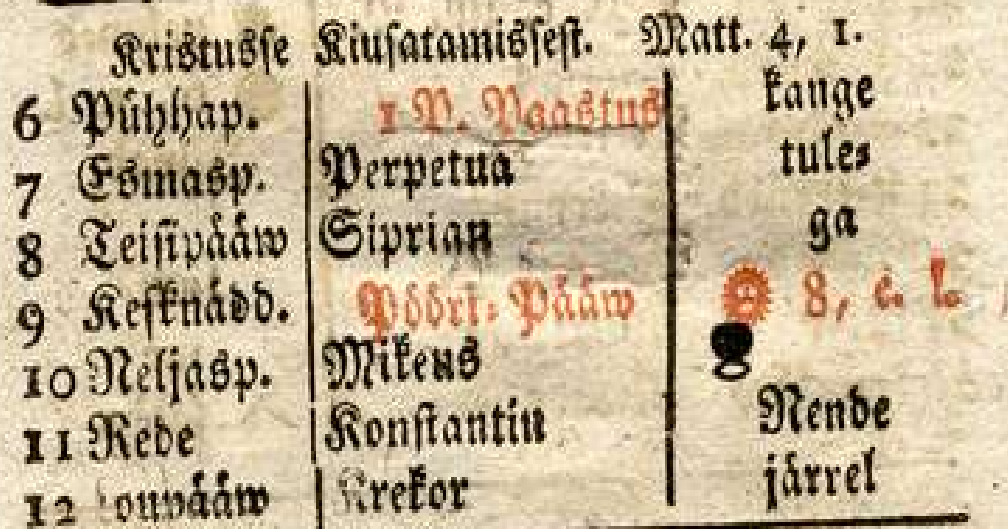 Kristusse Kiusatamissest. Matt. 4, 1.
6 Pühhap. 1 P. Paastus kange
7 Esmasp. Perpetua tules
8 Teisipääw Siprian ga
9 Kesknädd. Pööri-Pääw 8, e. l.
10 Neljasp. Mikeus
11 Rede Konstantin Nende
12 Krekor järrel